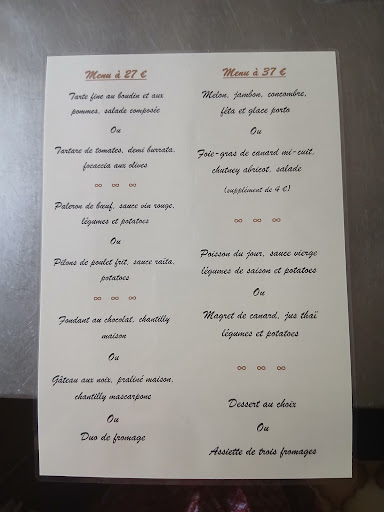 Menu à 27 €
Tarte fine au boudin et aux
pommes, salade composée
Ou
Tartare de tomates, demi burrata,
focaccia aux olives
∞ ∞ ∞
Paleron de bœuf, sauce vin rouge,
légumes et potatoes
Ou
Pilons de poulet frit, sauce raïta,
potatoes
∞ ∞ ∞
Fondant au chocolat, chantilly
maison
Ou
Gâteau aux noix, praliné maison,
chantilly mascarpone
Ou
Duo de fromage
Menu à 37 €
Melon, jambon, concombre,
féta et glace porto
Ou
Foie-gras de canard mi-cuit,
chutney abricot, salade
(supplément de 4 €)
∞ ∞ ∞
Poisson du jour, sauce vierge
légumes de saison et potatoes
Ou
Magret de canard, jus thaï
légumes et potatoes
∞ ∞ ∞
Dessert au choix
Ou
Assiette de trois fromages